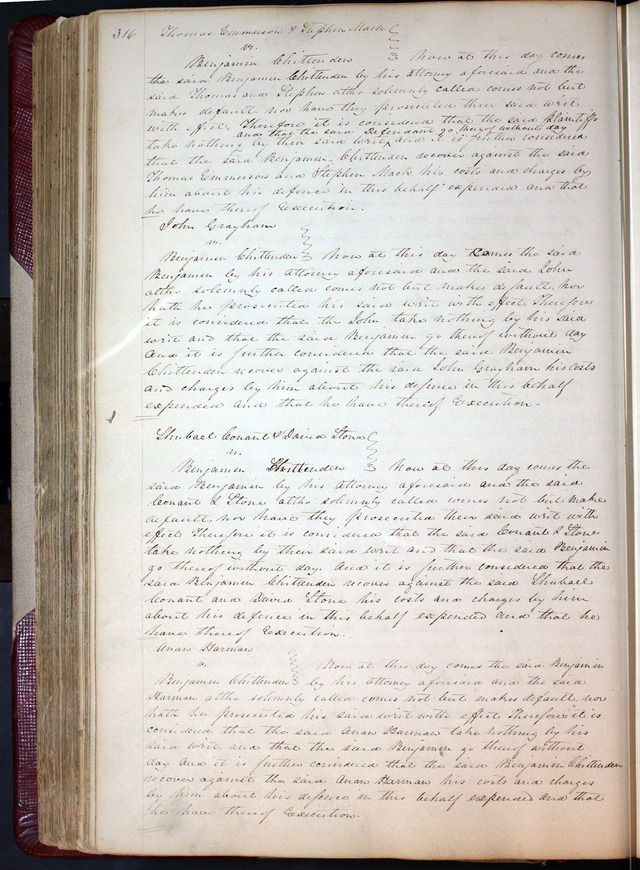 314 Thomas Emmerson & Stephen Mack
vs.
Benjamin Chittenden Now at this day comes
the said Benjamin Chittenden by his attorney aforesaid and the
said Thomas and Stephen altho solemnly called comes not but
makes default, nor have they prosecuted their said writ
with effect, Therefore it is considered that the said plaintiffs
and that the said Defendant go thereof without day
take nothing by their said writ, and it is further considered
that the said Benjamin Chittenden recover against the said
Thomas Emmerson and Stephen Mack his costs and charges by
him about his defence in this behalf expended and that
he have thereof Execution.
John Grayham
vs.
Benjamin Chittenden Now at this day Comes the said
Benjamin by his attorney aforesaid and the said John
altho solemnly called comes not but makes default, nor
hath he prosecuted his said writ with effect Therefore
it is considered that the John take nothing by his said
writ and that the said Benjamin go thereof without day
and it is further considered that the said Benjamin
Chittenden recover against the said John Grayham his costs
and charges by him about his defence in this behalf
expended and that he have thereof Execution.
Shubael Conant & David Stone
vs.
Benjamin Chittenden Now at this day comes the
said Benjamin by his attorney aforesaid and the said
Conant & Stone altho solemnly called comes not but make
default, nor have they prosecuted their said writ with
effect Therefore it is considered that the said Conant & Stone
take nothing by their said writ and that the said Benjamin
go thereof without day. And it is further considered that the
said Benjamin Chittenden recover against the said Shubael
Conant and David Stone his costs and charges by him
about his defence in this behalf expended and that he
have thereof Execution.
Anan Harman
vs.
Now at this day comes the said Benjamin
Benjamin Chittenden by his attorney aforesaid and the said
Harman altho solemnly called comes not but makes default, nor
hath he prosecuted his said writ with effect Therefore it is
considered that the said Anan Harman take nothing by his
said writ and that the said Benjamin go thereof without
day And it is further considered that the said Benjamin Chittenden
recover against the said Anan Harman his costs and charges
by him about his defence in this behalf expended and that
he have thereof Execution.